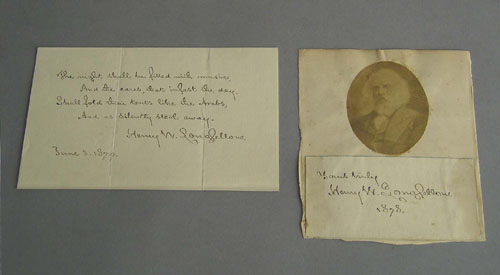 The night shall be filled with music,
And the cares, that infest the day,
Shall fold their tents like the Arabs,
And as silently steal away.
Henry W. Longfellow.
June 3.
Yours truly
Henry W. Longfellow
1878.